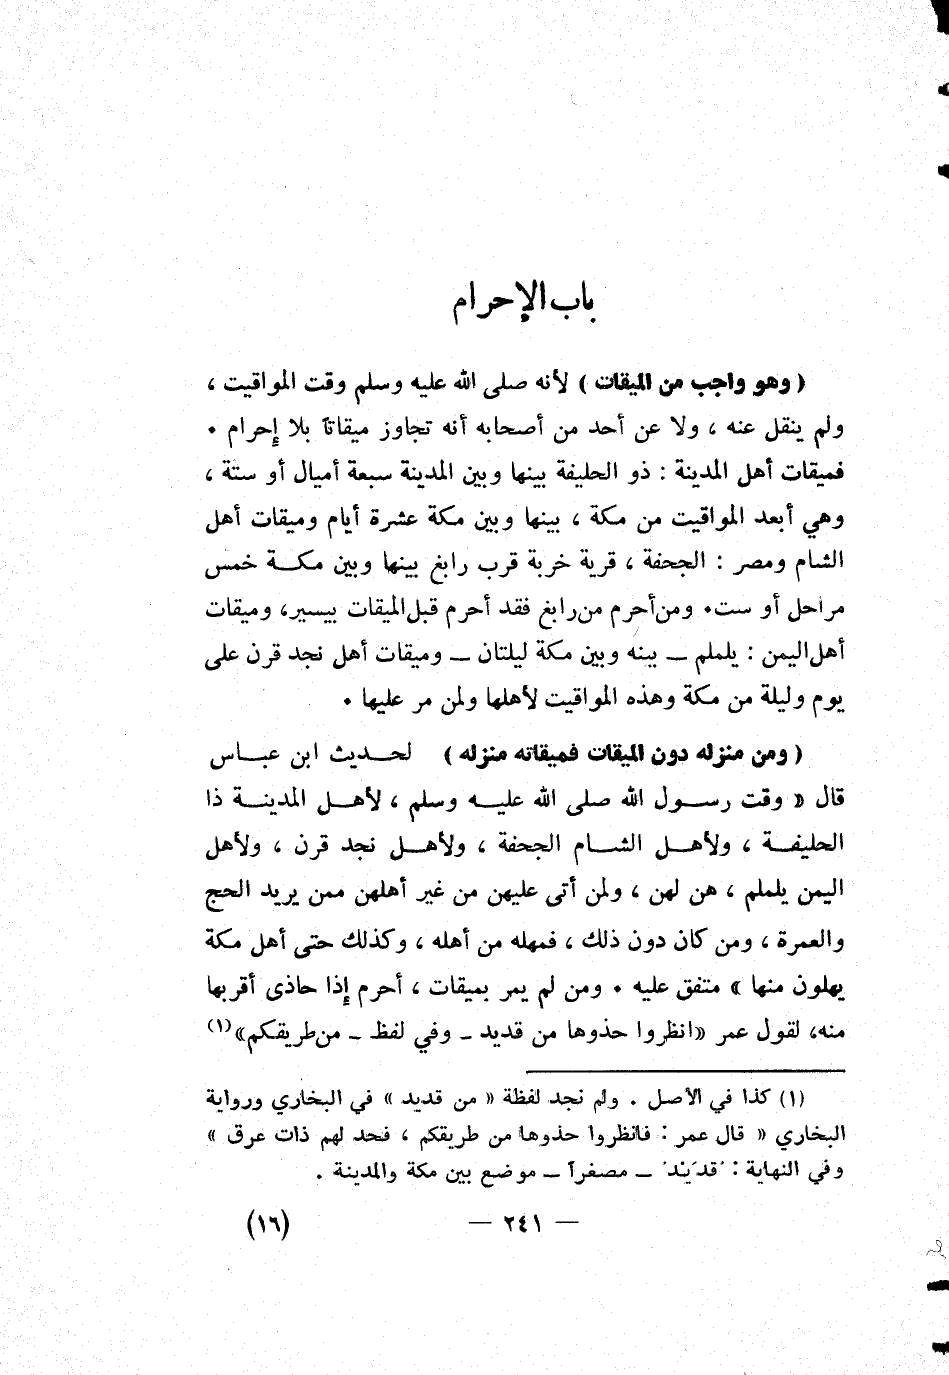 باب الإحرام
( وهو واجب من الميقات ) لأنه صلى الله عليه وسلم وقت المواقيت ،
ولم ينقل عنه ، ولا عن أحد من أصحابه أنه تجاوز ميقاتاً بلا إحرام .
فميقات أهل المدينة : ذو الحليفة بينها وبين المدينة سبعة أميال أو ستة ،
وهي أبعد المواقيت من مكة ، بينها وبين مكة عشرة أيام وميقات أهل
الشام ومصر : الجحفة ، قرية خربة قرب رابغ بينها وبين مكة خمس
مراحل أو ست. ومن أحرم من رابغ فقد أحرم قبل الميقات بيسير، وميقات
أهل اليمن : يلملم ــ بينه وبين مكة ليلتان ــ وميقات أهل نجد قرن على
يوم وليلة من مكة وهذه المواقيت لأهلها ولمن مر عليها .
( ومن منزله دون الميقات فميقاته منزله ) لحديث ابن عباس
قال « وقت رسول الله صلى الله عليه وسلم ، لأهل المدينة ذا
الحليفة ، ولأهل الشام الجحفة ، ولأهل نجد قرن ، ولأهل
اليمن يلملم ، هن لهن ، ولمن أتى عليهن من غير أهلهن ممن يريد الحج
والعمرة ، ومن كان دون ذلك ، فمهله من أهله ، وكذلك حتى أهل مكة
يهلون منها » متفق عليه . ومن لم يمر بميقات ، أحرم إذا حاذى أقربها
منه، لقول عمر «انظروا حذوها من قديد ـ وفي لفظ ـ من طريقكم»(١)
(١) كذا في الأصل . ولم نجد لفظة « من قديد » في البخاري ورواية
البخاري « قال عمر : فانظروا حذوها من طريقكم ، فحد لهم ذات عرق »
وفي النهاية : قُدَيْد ــ مصغراً ــ موضع بين مكة والمدينة .
— ٢٤١ —
(١٦)